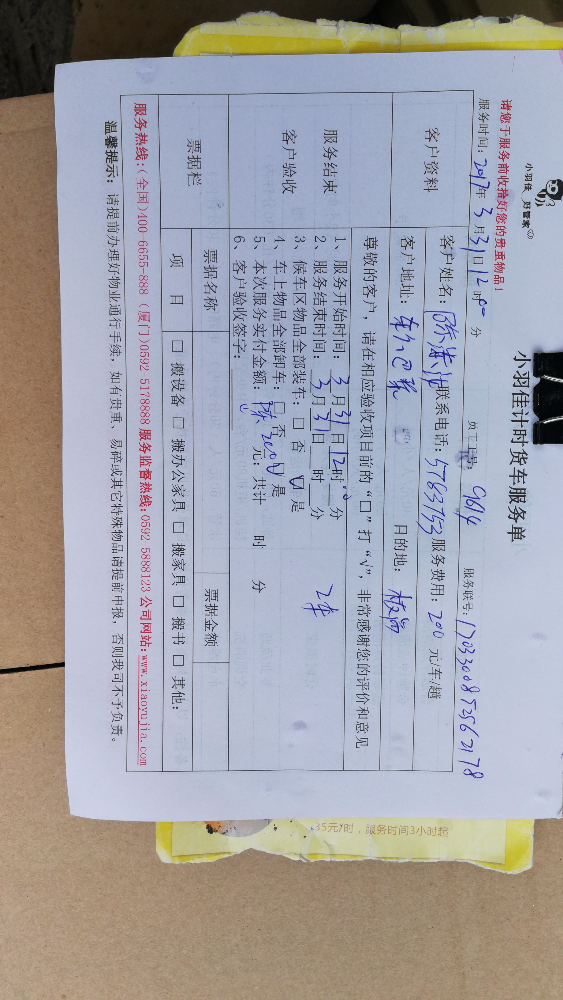 小羽佳 好管家
请您于服务前收拾好您的贵重物品！
小羽佳计时货车服务单
服务时间：2017年3月31日12时00分 员工工号：9614 服务联号：1703300872562178
客户资料
客户姓名： 联系电话：5783753 服务费用：200元/车/趟
客户地址： 目的地：
尊敬的客户，请在相应验收项目前的“□”打“√”，非常感谢您的评价和意见
服务结束
客户验收
1、服务开始时间：3月31日12时00分
2、服务结束时间：3月31日 时 分
3、候车区物品全部装车：□ 否 ☑ 是
4、车上物品全部卸车：□ 否 ☑ 是
5、本次服务实付金额：200元；共计 时 分
6、客户验收签字：
2车
票据栏
票据名称 票据金额
项 目 □ 搬设备 □ 搬办公家具 □ 搬家具 □ 搬书 □ 其他：
服务热线：(全国)400-6655-888 (厦门)0592 5178888 服务监督热线：0592 5888123 公司网站：www.xiaoyujia.com
温馨提示：请提前办理好物业通行手续，如有贵重、易碎或其它特殊物品请提前申报，否则我司不予负责。
35元/时，服务时间3小时起